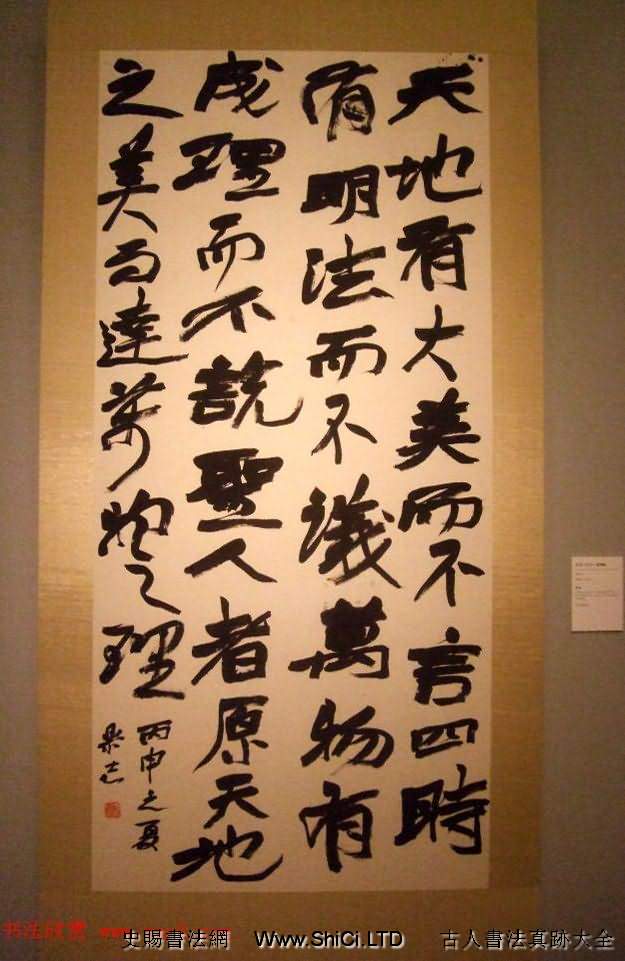 天地有大美而不言四時
有明法而不議萬物有
成理而不説聖人者原天地
之美而達萬物之理
丙申之夏
樂之
史賜書法網 Www.ShiCi.LTD 古人書法真跡大全